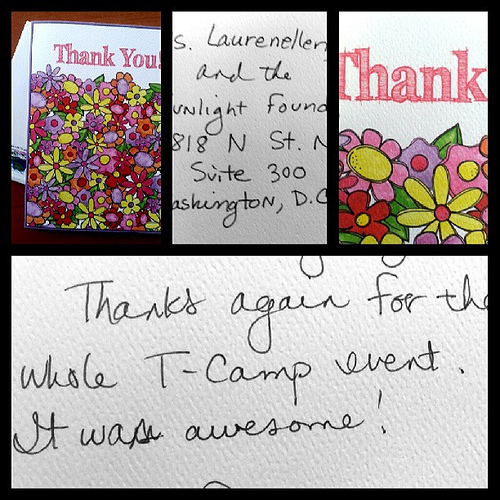 Thank You!
s. Laurenellen
and the
unlight Found
818 N St. N
Suite 300
ashington, D.C
Thank
Thanks again for the
whole T-Camp event.
It was awesome!